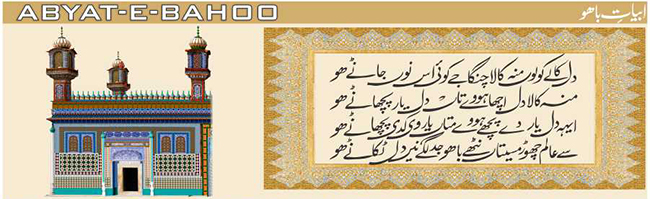 ABYAT-E-BAHOO
ابیات باھو
دل کالے کولوں منہ کالا چنگا جے کوئی اس نوں جانے ھو
منہ کالا دل اچھا ہووے تاں دل یار پچھانے ھو
ایہہ دل یار دے پچھے ہووے متاں یار وی کدی پچھانے ھو
سے عالم چھوڑ مسیتاں نٹھے باھو جد لگے نیں دل ٹکانے ھو